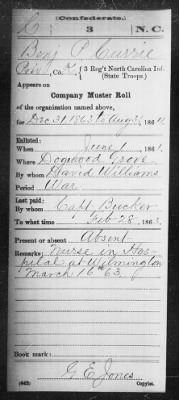 Confederate.
C 3 N.C.
Benj P Currie
Pvt, Co. F, 3 Reg't North Carolina Inf.
(State Troops.)
Appears on
Company Muster Roll
of the organization named above,
for Dec 31 1863 to Aug 31, 1864.
Enlisted:
When June 1, 1861.
Where Dogwood Grove
By whom David Williams
Period War
Last paid:
By whom Capt Rucker
To what time Feb 28, 1863.
Present or absent Absent
Remarks: Nurse in Hos-
pital at Wilmington
March 16 63.
Book mark:
G E Jones
(642) Copyist.